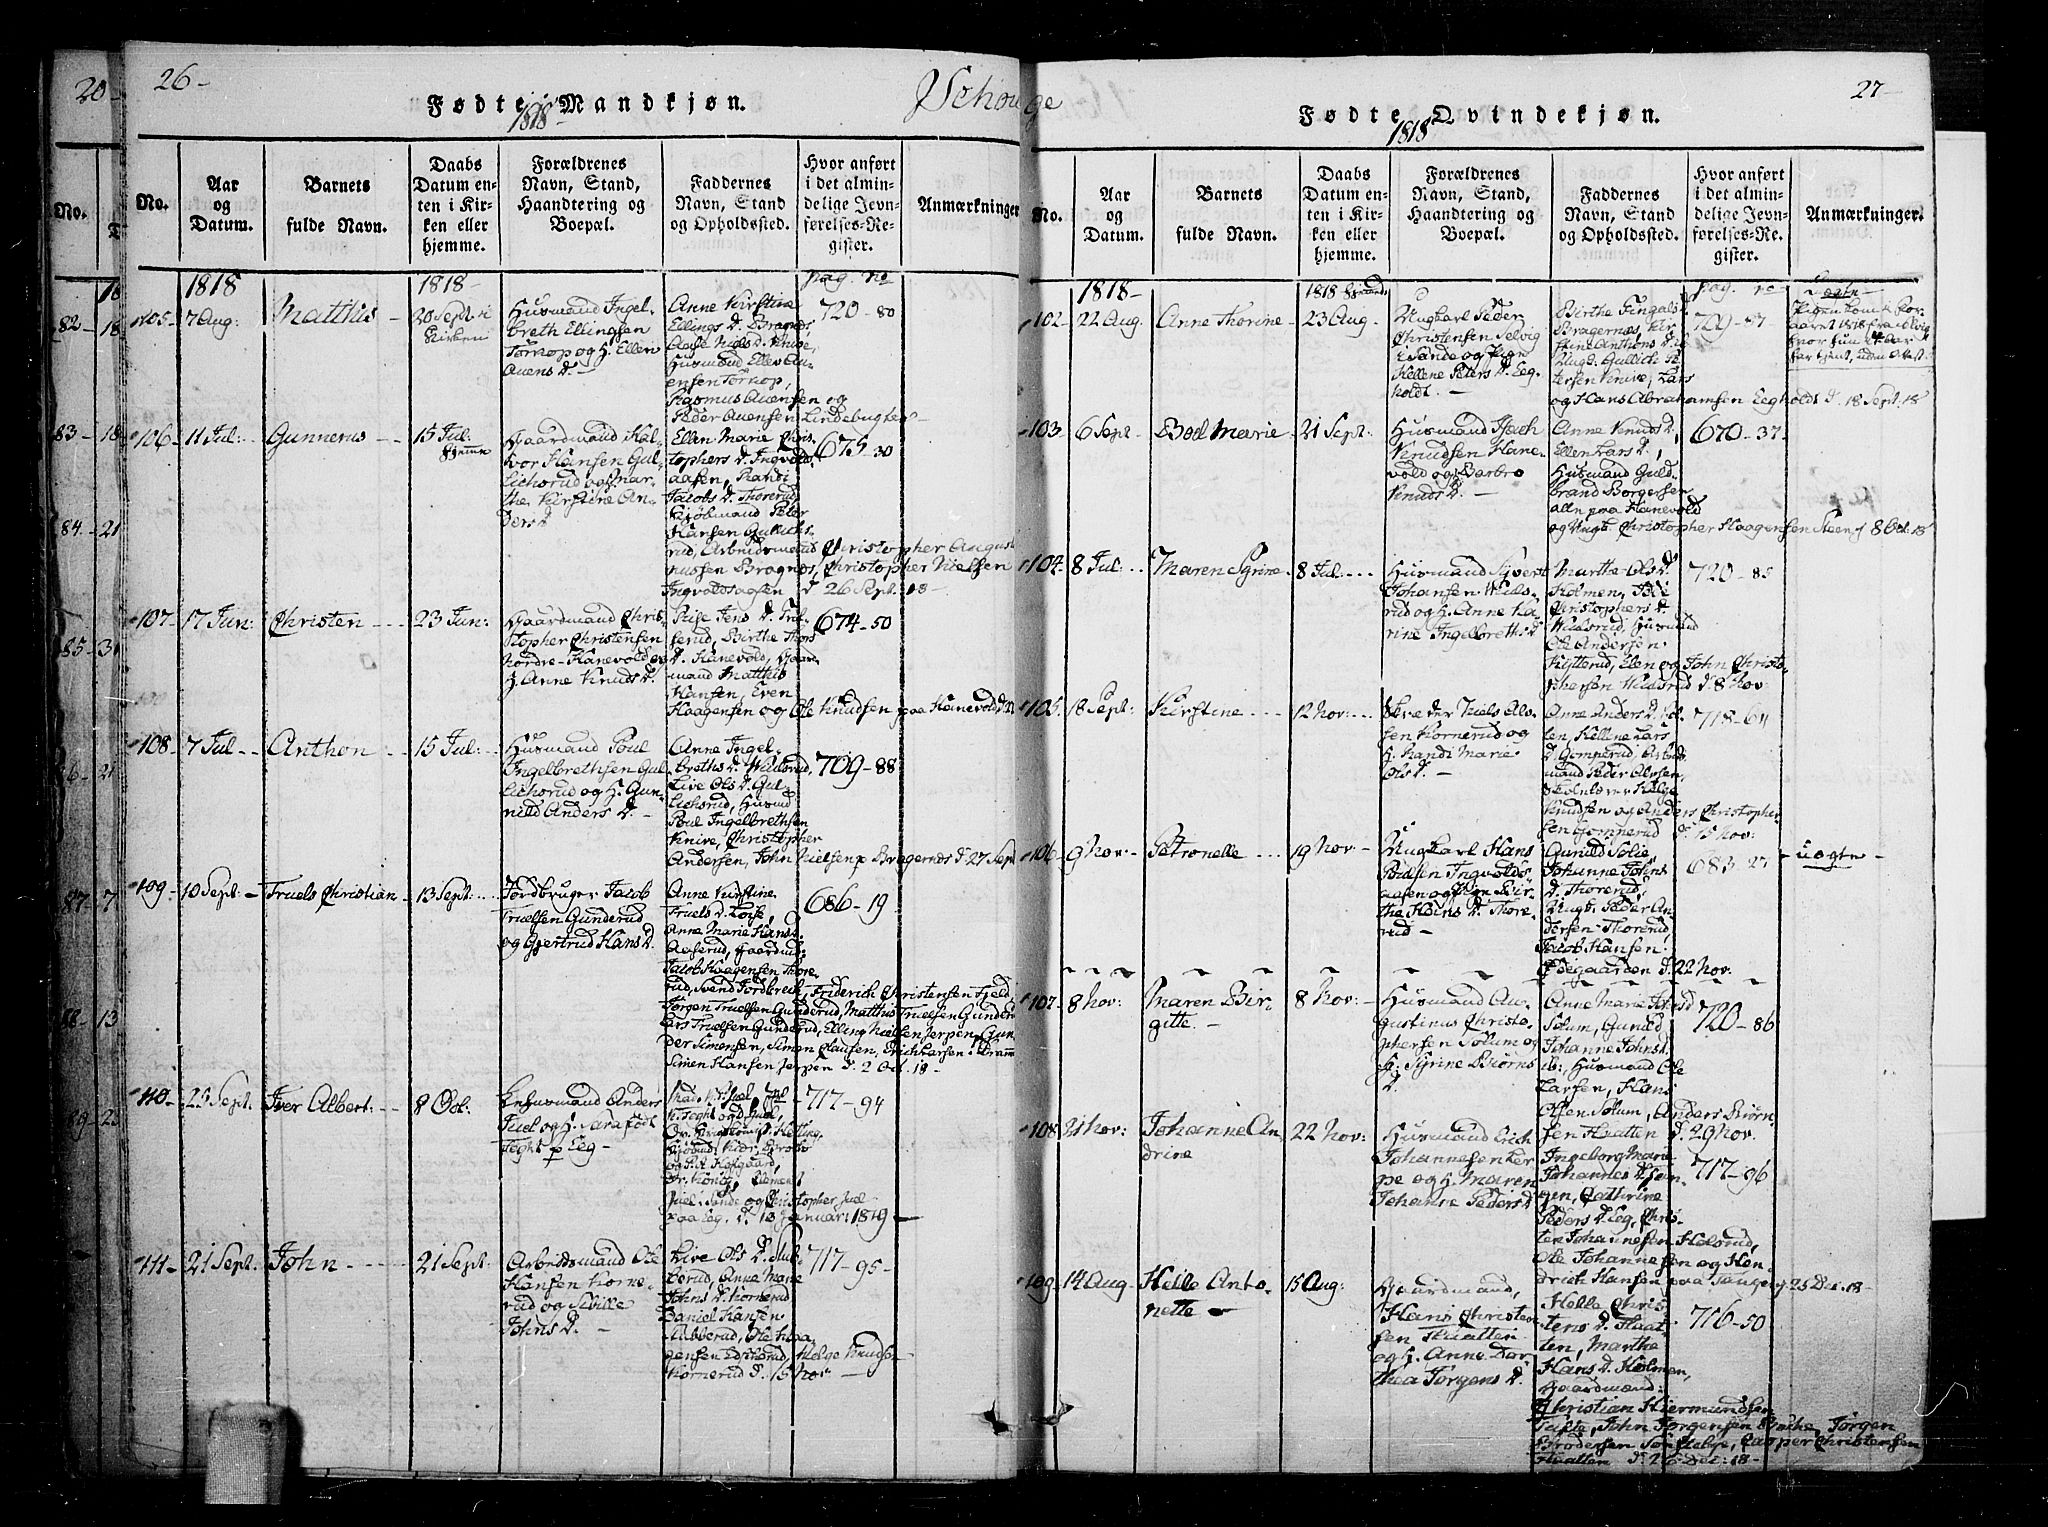 20-
26-
Fødte Mandkjøn.
1818
No.
Aar og Datum.
Barnets fulde Navn.
Daabs Datum enten i Kirken eller hjemme.
Forældrenes Navn, Stand, Haandtering og Boepæl.
Faddernes Navn, Stand og Opholdssted.
Hvor anført i det almindelige Jevnførelses-Register.
Anmærkninger
1818
1818-
pag. no
105-
7 Aug:
Matthis
20 Sept: i
Kirken
Husmand Ingel-
breth Ellingsen
Torkop og H. Ellen
Auens D. -
Anne Kirstine
Ellings D. Bragnæs,
Aase Niels D. Knive,
Husmand Ellev Au-
ensen Torkop,
Rasmus Auensen og
Peder Auensen Lindebugten
720-80
106-
11 Jul:
Gunnerus
15 Jul:
hjemme
Gaardmand Hal-
vor Hansen Gul-
lichsrud og Mar-
the Kirstine An-
ders D
Ellen Marie Chris-
tophers D. Ingvolds-
aasen, Randi
Jacobs D. Thorerud,
Kjøbmand Peter
Hansen Gullichs-
rud, Arbeidsmand Christopher August
nussen Bragnæs, Christopher Nielsen
Ingvoldsaasen d 26 Sept: 18-
675-30
107-
17 Jun:
Christen
23 Jun:
Gaardmand Chris-
topher Christensen
Nordre-Hanevold og
H. Anne Knuds D.
serud, Birthe Thors
D. Hanevold, Gaard-
mand Matthis
Hansen, Even
Haagensen og Ole Knudsen paa Hanevold
674-50
108-
7 Jul
Anthon
15 Jul:
Husmand Poul
Ingelbrethsen Gul-
lichsrud og H. Gun-
nild Anders D. -
Anne Ingel-
breths D. Wulsrud,
Live Ols D. Gul-
lichsrud, Husmd
Poul Ingelbrethsen
Knive, Christopher
Andersen, John Nielsen p Bragernæs d. 27 Sept
709-88
109-
10 Sept:
Truels Christian
13 Sept:
Jordbruger Jacob
Truelsen Gunderud
og Gjertrud Hans D.
Anne Kirstine
Truels D.
Anne Marie Hans D.
Aaserud, Gaardmd:
Jacob Haagensen Thore-
rud, Svend Jordbrek, Friderich Christensen Fjeld
Jørgen Truelsen Gunderud, Matthis Truelsen Gunder
Lars Truelsen Gunderud, Elling Nielsen Jerpen, Gun-
der Simensen, Simen Olausen, Erich Larsen
Simen Hansen Jerpen d. 2 Oct. 18-
686-19
110-
25 Sept.
Iver Albert:
8 Oct:
Anders
Juel og H. Sara født
Teght p Eeg-
og Kl. Hofgaard,
Juel: Sande og Christopher Juel
paa Eeg. d. 13 Januar: 1819-
717-94
111-
21 Sept.
John
21 Sept:
Arbeidsmand Ole
Hansen Horne-
rud og Sibille
Johns D. -
Live Ols D.
Anne Marie
Johns D. Hornerud
Daniel Hansen
Ole Haa-
gensen Helge Knudsen
Hornerud d. 15 Nov -
717-95-
Schouge
27-
Fødte Qvindekjøn.
1818
No.
Aar og Datum.
Barnets fulde Navn.
Daabs Datum enten i Kirken eller hjemme.
Forældrenes Navn, Stand, Haandtering og Boepæl.
Faddernes Navn, Stand og Opholdssted.
Hvor anført i det almindelige Jevnførelses-Register.
Anmærkninger.
1818-
1818 hjemme
pag. no-
Uægte-
102-
22 Aug.
Anne Thorine
23 Aug.
Ungkarl Peder
Christensen Selvig
i Sande og Pigen
Hellene Peters D. Eeg-
holdt. -
Birthe Fingals D
Bragernæs, Kir-
stine Anthons D.
Ungk. Gullich Pe-
tersen Knive, Lars
og Hans Abrahamsen Eegholdt d. 18 Sept: 18
729-87
103-
6 Sept
Bod Marie
21 Sept:
Husmand Isach
Knudsen Hane-
vold og Barbro
Knuds D. -
Anne Knuds D,
Ellen Lars D,
Husmand Guld-
brand Borgersen
alle paa Hanevold
og Ungk. Christopher Haagensen Steen d 8 Oct. 18
670-37-
104.
8 Jul:
Maren Syrine
8 Jul:
Husmand Syvert
Johansen Wuls-
rud og H. Anne Ka-
rine Ingelbreths D
Marthe Ols D
Holmen,
Christophers D.
Wulsrud, Husmd
Ole Andersen
Hytterud, Elen og John Christo-
phersen Wulsrud d. 8 Nov:
720-85
105.
18 Sept:
Kirstine
12 Nov:
Skræder Niels Ols-
sen Hornerud og
H. Randi Marie
Ols D. -
Anne Anders D.
Hellene Lars
D. Gomperud, Arbeids-
mand Peder Olsen,
Skolelærer Helge
Knudsen og Anders Christopher-
sen Gomperud d. 15 Nov:
718-64
106-
9 Nov:
Petronelle
19 Nov
Ungkarl Hans
Ingvolds-
aasen og Pigen Bir-
the Hans D. Thore-
rud -
Gunild Solie
Johanne Johns
D. Thorerud,
Ungk. Peder An-
dersen Thorerud
Jacob Hansen
Ødegaarden d. 22 Nov.
683-27
- uægte -
107
8 Nov:
Maren Bir-
gitte. -
8 Nov:
Husmand Au-
gustinus Christo-
phersen Solum og
H: Syrine Biørns
D.
Anne Marie Johns D
Solum, Gunild,
Johanne Johns D.
ib:, Husmand Ole
Larsen, Hans
Olsen Solum, Anders Biørn-
sen Huatten d. 29 Nov.
720-86
108
21 Nov:
Johanne An-
drine
22 Nov:
Husmand Erich
Johannesen Ler-
pe og H. Maren
Johanne Peders D
Ingeborg Marie
Johannes D.
Cathrine
Peders D. Eeg, Chris-
ten Johannesen Helsrud,
Ole Johannesen og Hen-
drich Hansen paa d. 25 Dec: 18-
717-96
109
14 Aug
Helle Anto-
nette -
15 Aug:
Gaardmand,
Hans Christen-
sen Huatten
og H. Anne Dor-
thea Jørgens D.
Helle Chris-
tens D. Huat-
ten, Marthe
Hans D. Holmen,
Gaardmænd:
Christian Hiermundsen
Tufte, John Jørgensen Jørgen
Brodersen Casper Christensen
Huatten d. 26 Dec: 18-
716-50